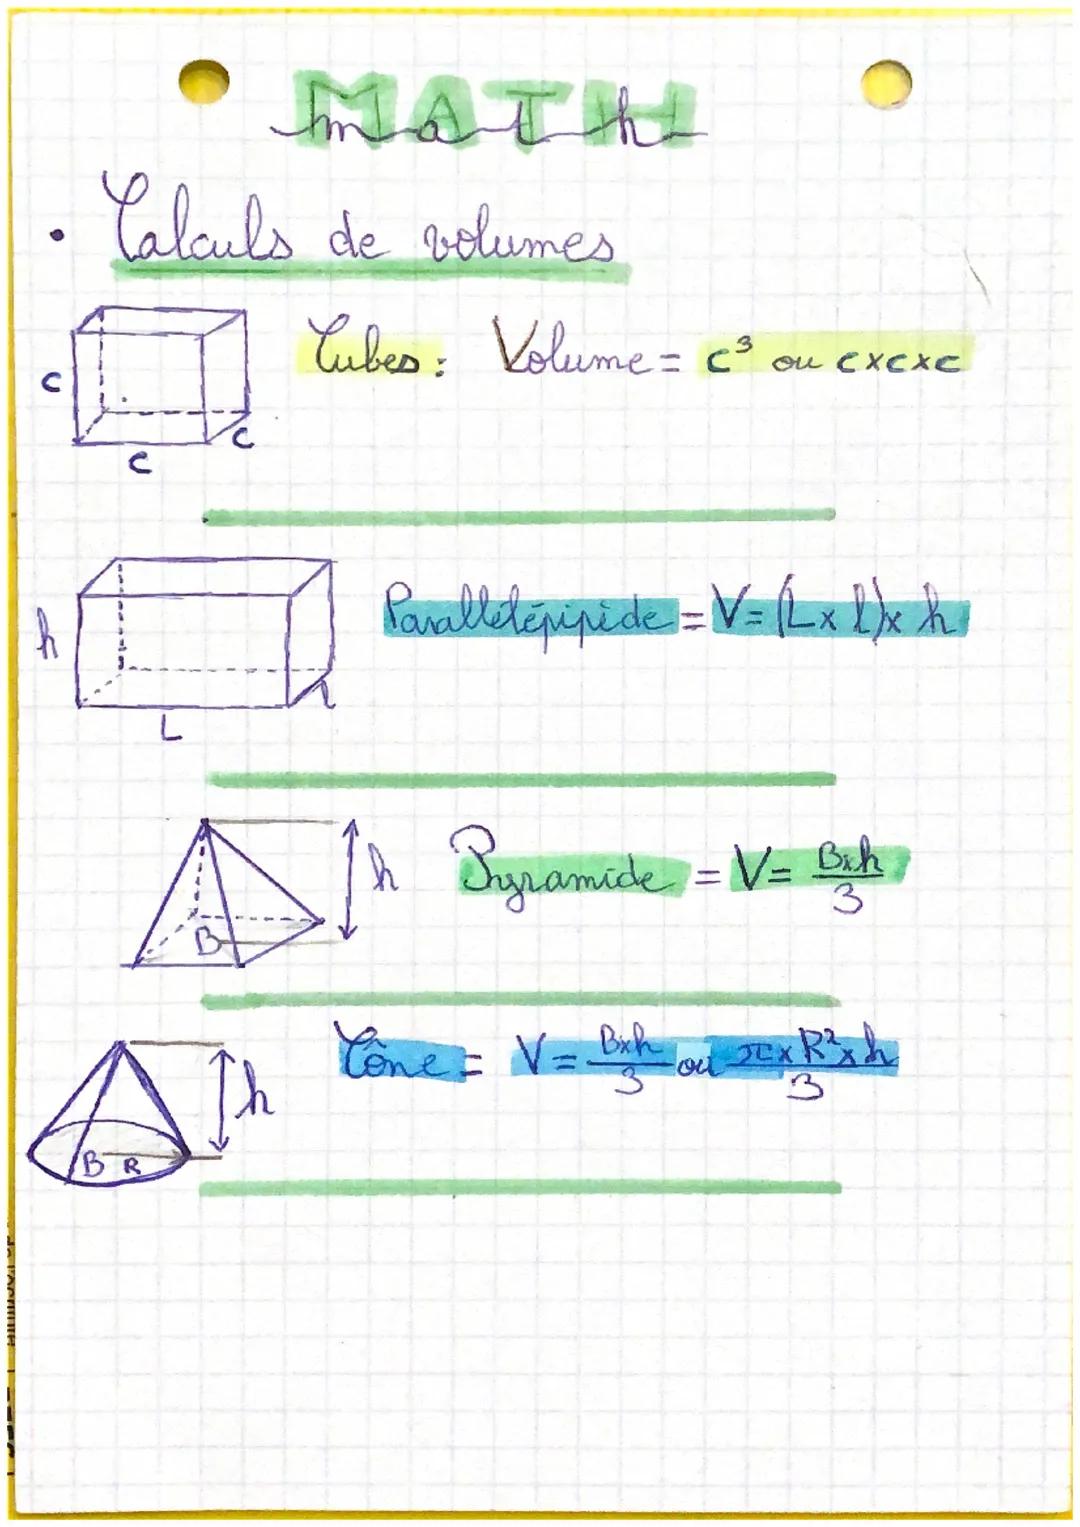 MATH
math
• Calculs de volumes
Cubes : Volume = c³ ou c×c×c
c
c
c
Parallélépipède = V = (L x l) x h
h
l
L
Pyramide = V = B×h/3
h
B
Cône = V = B×h/3 ou π×R²×h/3
h
B R